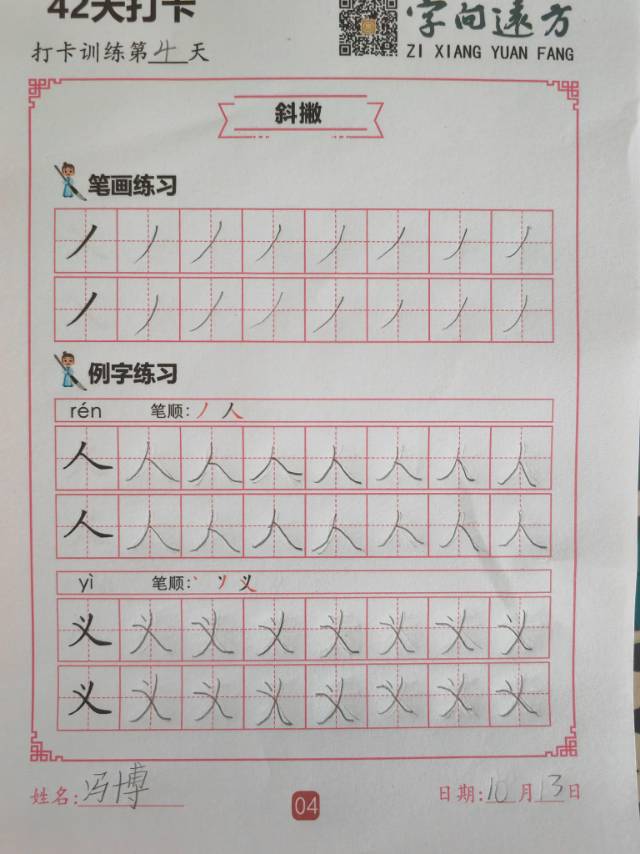 42天打卡
字向远方
打卡训练第4天
ZI XIANG YUAN FANG
斜撇
笔画练习
丿丿丿丿丿丿丿丿
丿丿丿丿丿丿丿丿
例字练习
rén 笔顺:丿 人
人人人人人人人人
人人人人人人人人
yì 笔顺:丶 丷 义
义义义义义义义义
义义义义义义义义
姓名:冯博
04
日期:10月13日